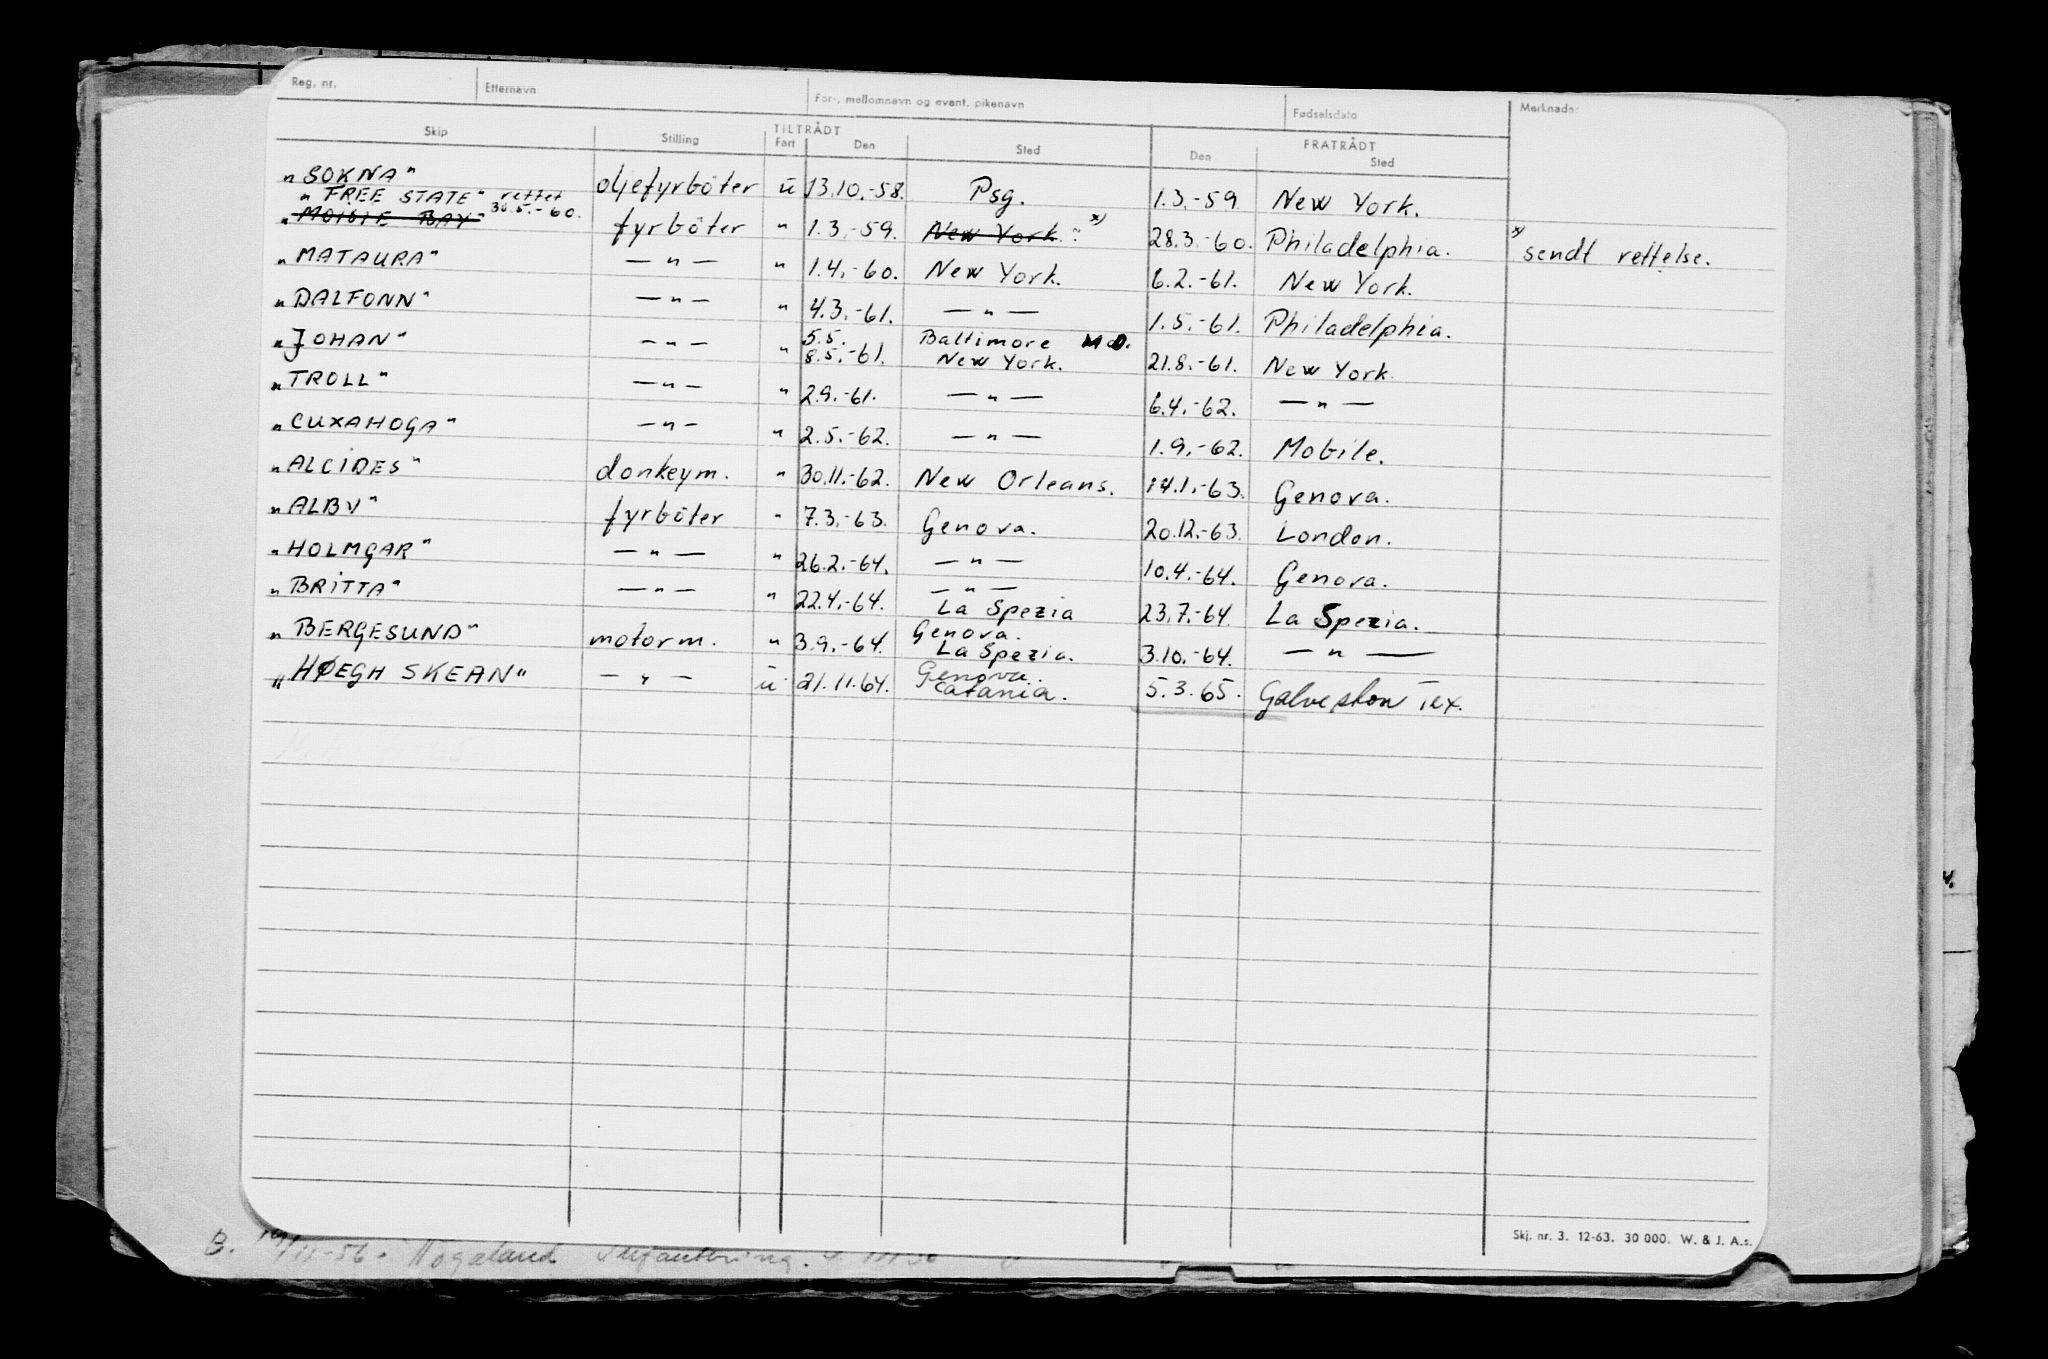 Reg. nr. Etternavn For-, mellomnavn og event. pikenavn Fødselsdato Merknader
TILTRÅDT FRATRÅDT
Skip Stilling Fart Den Sted Den Sted
"SOKNA" oljefyrbøter u 13.10.-58. Psg. 1.3.-59 New York.
"FREE STATE" rettet 30.5.-60.
"MOISIE BAY" fyrbøter " 1.3.-59. New York. " x) 28.3.-60. Philadelphia. x) sendt rettelse.
"MATAURA" — " — " 1.4.-60. New York. 6.2.-61. New York.
"DALFONN" — " — " 4.3.-61. — " — 1.5.-61. Philadelphia.
"JOHAN" — " — " 5.5. Baltimore Md.
8.5.-61. New York. 21.8.-61. New York.
"TROLL" — " — " 2.9.-61. — " — 6.4.-62. — " —
"CUXAHOGA" — " — " 2.5.-62. — " — 1.9.-62. Mobile.
"ALCIDES" donkeym. " 30.11.-62. New Orleans. 14.1.-63. Genova.
"ALBU" fyrbøter " 7.3.-63. Genova. 20.12.-63. London.
"HOLMGAR" — " — " 26.2.-64. — " — 10.4.-64. Genova.
"BRITTA" — " — " 22.4.-64. — " —
La Spezia 23.7.-64. La Spezia.
"BERGESUND" motorm. " 3.9.-64. Genova.
La Spezia. 3.10.-64. — " —
"HØEGH SKEAN" — " — u 21.11.64. Genova.
Catania. 5.3.65. Galveston Tex.
Skj. nr. 3. 12-63. 30 000. W. & J. A.s.
B. 11-56. Høgaland